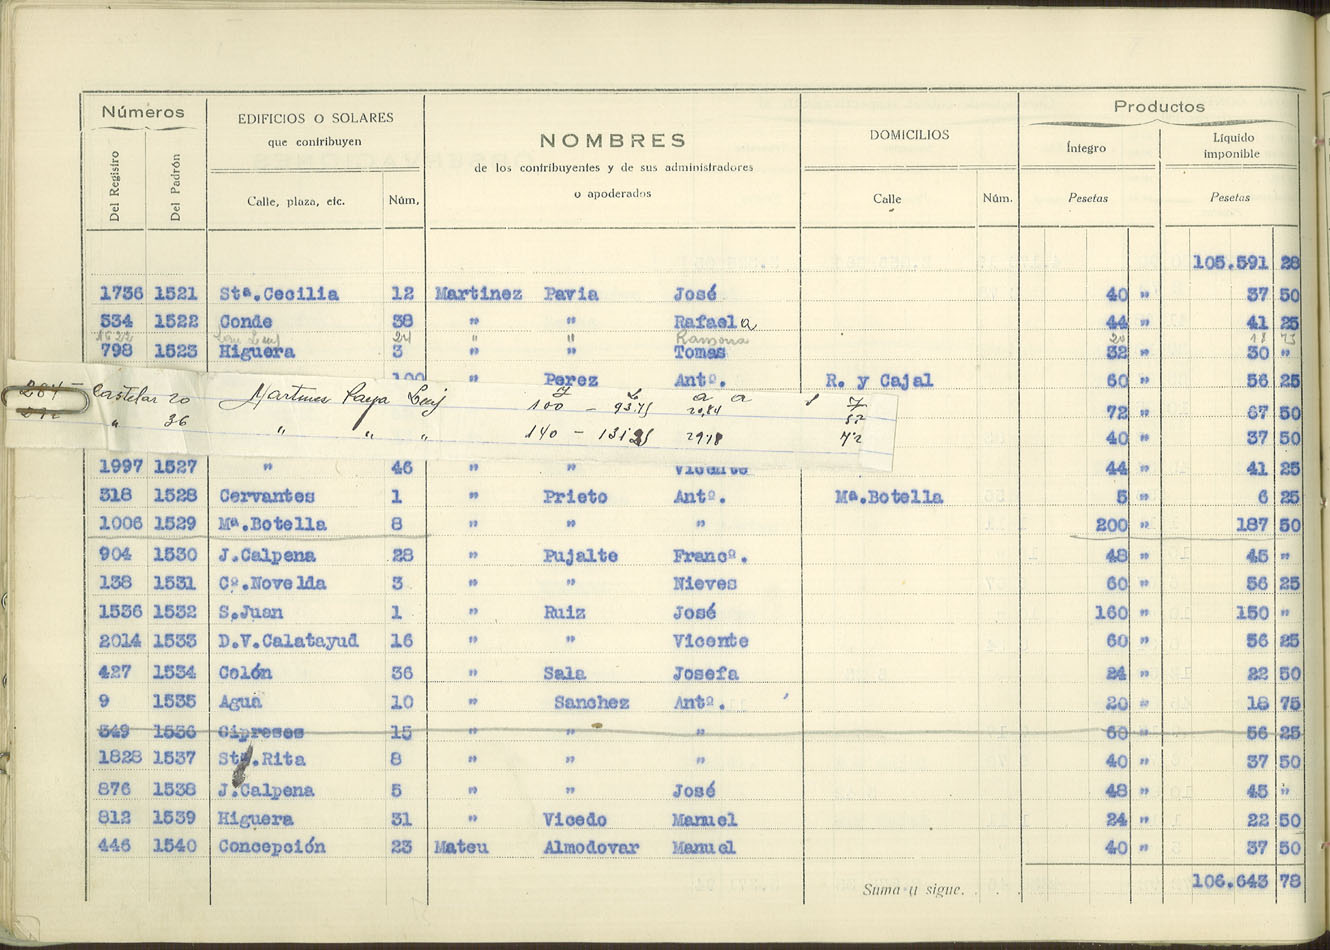 Números
EDIFICIOS O SOLARES
que contribuyen
NOMBRES
de los contribuyentes y de sus administradores
o apoderados
DOMICILIOS
Productos
Íntegro
Líquido
imponible
Del Registro Del Padrón Calle, plaza, etc. Núm. Calle Núm. Pesetas Pesetas
105.591 28
1736 1521 Stª.Cecilia 12 Martinez Pavia José 40 " 37 50
534 1522 Conde 38 " " Rafaela 44 " 41 25
24 " " Ramona 20 18 75
798 1523 Higuera 3 " " Tomas 32 " 30 "
100 " Perez Antº. R. y Cajal 60 " 56 25
284 Castelar 20 Martinez Paya Luis 100 - 93.75 20,84
72 " 67 50
" 36 " " " 140 - 131 25 29 18 72
40 " 37 50
1997 1527 " 46 " " Vicente 44 " 41 25
318 1528 Cervantes 1 " Prieto Antº. Mª.Botella 5 " 6 25
1006 1529 Mª.Botella 8 " " " 200 " 187 50
904 1530 J.Calpena 28 " Pujalte Francº. 48 " 45 "
138 1531 Cº.Novelda 3 " " Nieves 60 " 56 25
1536 1532 S.Juan 1 " Ruiz José 160 " 150 "
2014 1533 D.V.Calatayud 16 " " Vicente 60 " 56 25
427 1534 Colón 36 " Sala Josefa 24 " 22 50
9 1535 Agua 10 " Sanchez Antº. 20 " 18 75
349 1536 Cipreses 15 " " " 60 " 56 25
1828 1537 Stª.Rita 8 " " " 40 " 37 50
876 1538 J.Calpena 5 " " José 48 " 45 "
812 1539 Higuera 31 " Vicedo Manuel 24 " 22 50
446 1540 Concepción 23 Mateu Almodovar Manuel 40 " 37 50
Suma y sigue. . . . 106.643 78